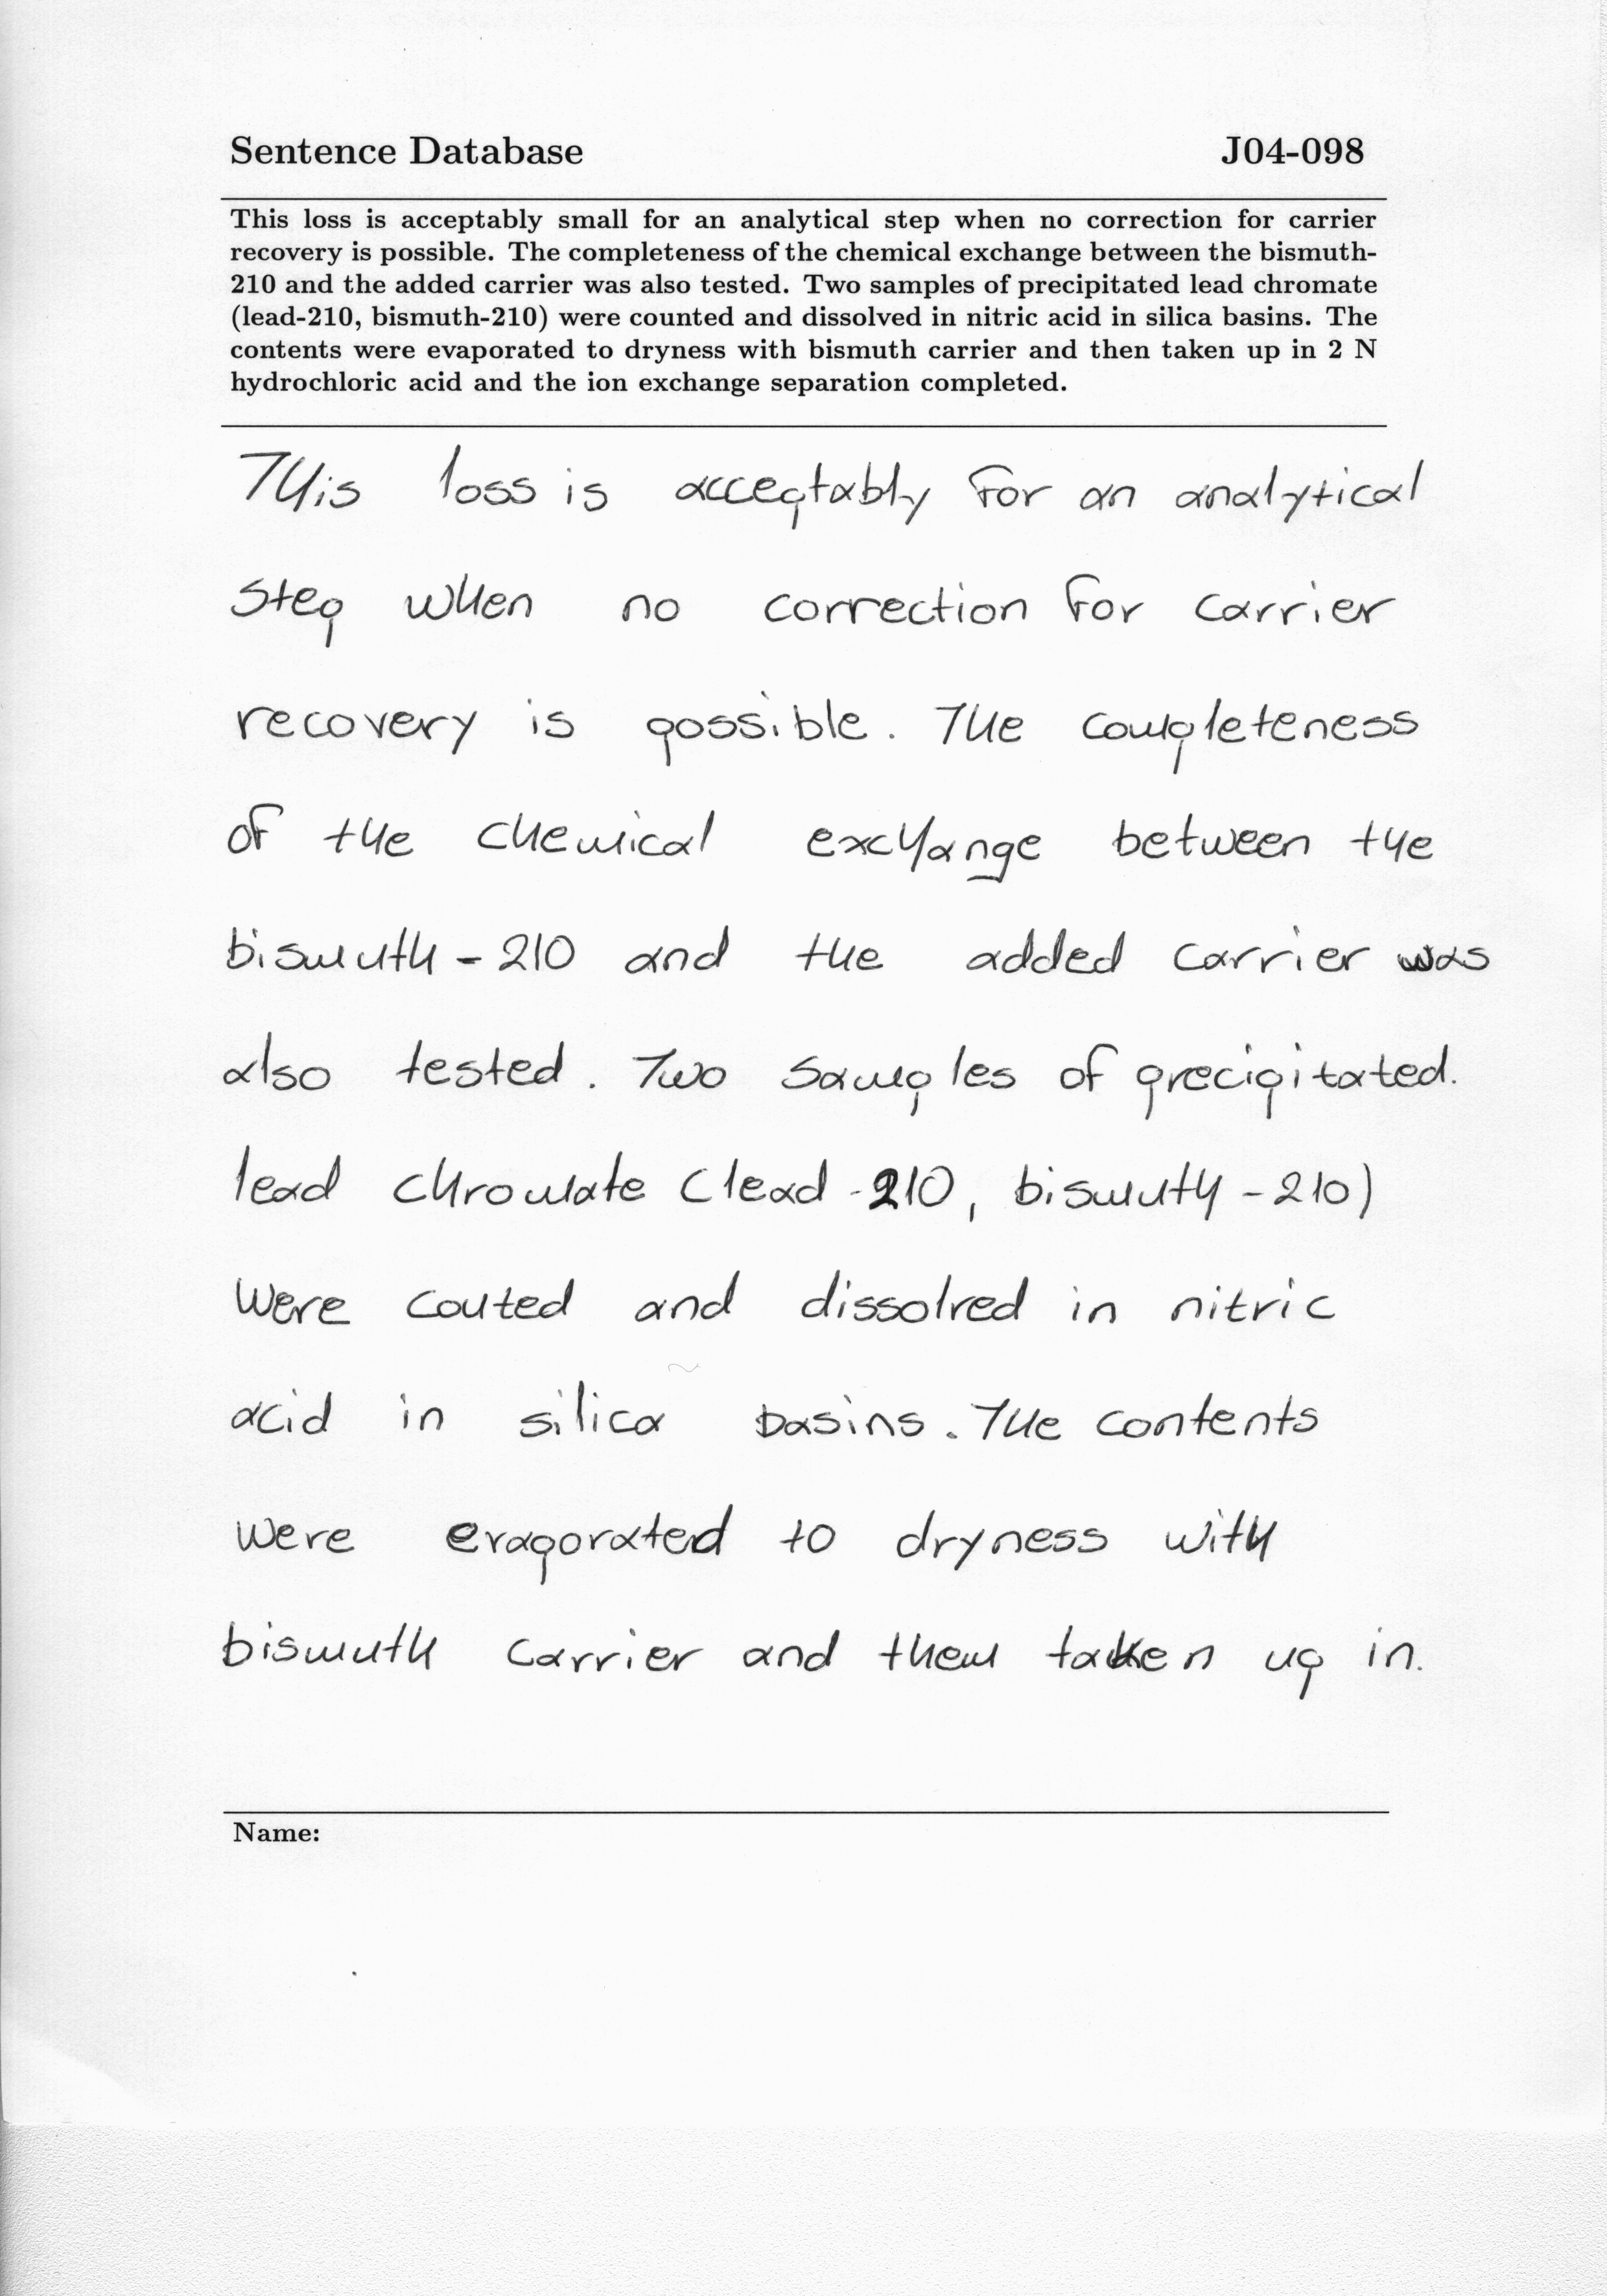 Sentence Database J04-098
This loss is acceptably small for an analytical step when no correction for carrier
recovery is possible. The completeness of the chemical exchange between the bismuth-
210 and the added carrier was also tested. Two samples of precipitated lead chromate
(lead-210, bismuth-210) were counted and dissolved in nitric acid in silica basins. The
contents were evaporated to dryness with bismuth carrier and then taken up in 2 N
hydrochloric acid and the ion exchange separation completed.
This loss is acceptably for an analytical
step when no correction for carrier
recovery is possible. The completeness
of the chemical exchange between the
bismuth-210 and the added carrier was
also tested. Two samples of precipitated.
lead chromate (lead-210, bismuth-210)
were couted and dissolred in nitric
acid in silica basins. The contents
were eraporated to dryness with
bismuth carrier and them taken up in.
Name: